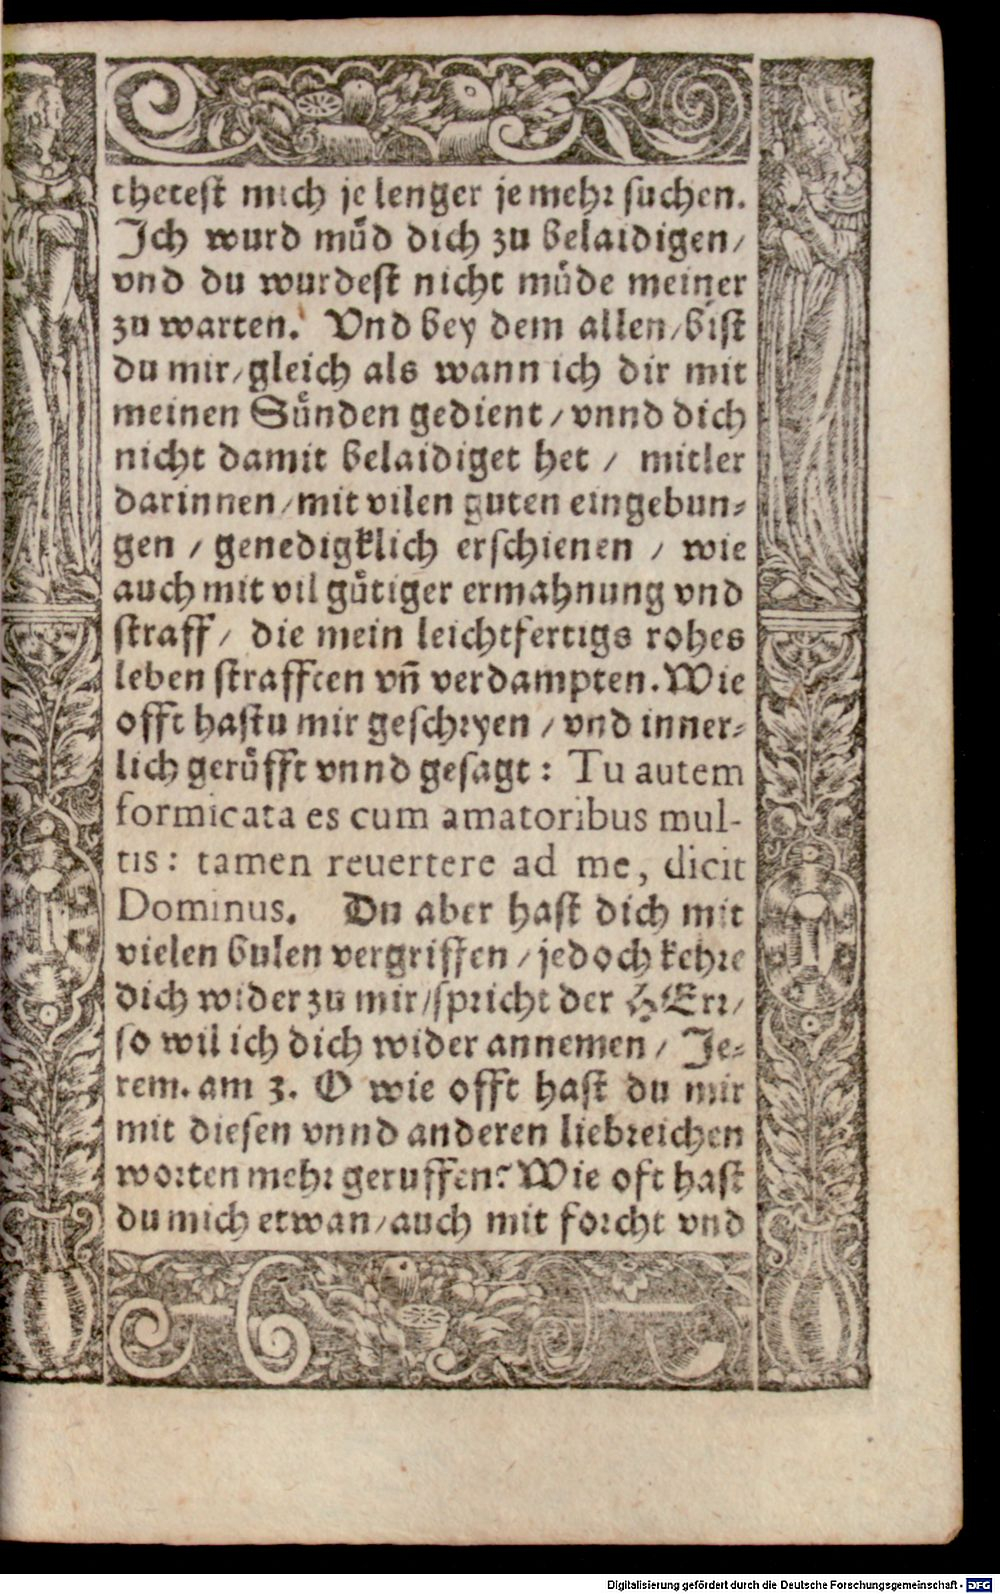 thetest mich je lenger je mehr suchen.
Ich wurd muͤd dich zu belaidigen/
vnd du wurdest nicht muͤde meiner
zu warten. Vnd bey dem allen/bist
du mir/gleich als wann ich dir mit
meinen Suͤnden gedient/vnnd dich
nicht damit belaidiget het / mitler
darinnen/mit vilen guten eingebun⸗
gen / genedigklich erschienen / wie
auch mit vil guͤtiger ermahnung vnd
straff/ die mein leichtfertigs rohes
leben strafften vñ verdampten. Wie
offt hastu mir geschryen / vnd inner⸗
lich geruͤfft vnnd gesagt: Tu autem
formicata es cum amatoribus mul-
tis: tamen reuertere ad me, dicit
Dominus. Du aber hast dich mit
vielen bulen vergriffen/jedoch kehre
dich wider zu mir/spricht der HErr/
so wil ich dich wider annemen/ Je⸗
rem. am 3. O wie offt hast du mir
mit diesen vnnd anderen liebreichen
worten mehr geruffen? Wie oft hast
du mich etwan/auch mit forcht vnd
Digitalisierung gefördert durch die Deutsche Forschungsgemeinschaft - DFG